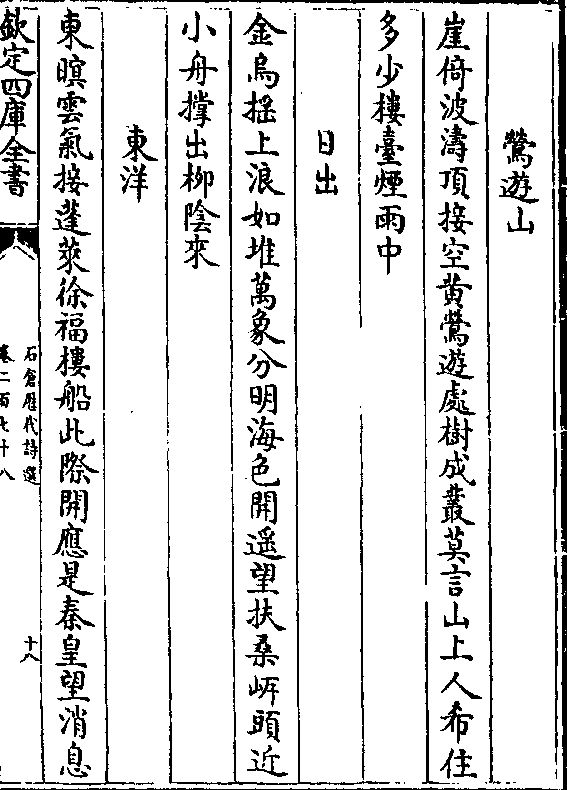 鶯遊山
崖倚波濤頂接空黄鶯遊處樹成叢莫言山上人希住
多少樓臺煙雨中
日出
金烏揺上浪如堆萬象分明海色開遥望扶桑㟁頭近
小舟撑出柳陰來
東洋
東暝雲氣接蓬萊徐福樓船此際開應是秦皇望消息
欽定四庫全書
石倉歷代詩選
十八